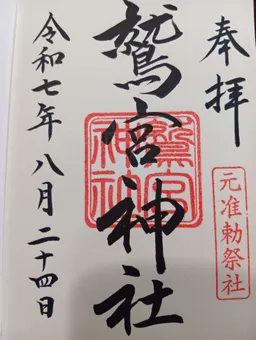 奉拝
元准勅祭社
鷲宮神社
鷲宮神社
令和七年八月二十四日